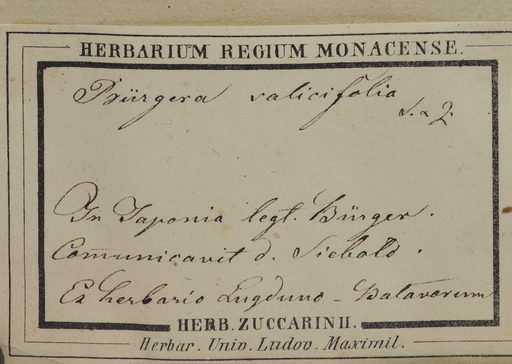 HERBARIUM REGIUM MONACENSE.
Bürgera salicifolia
S. & Z.
In Japonia legt. Bürger.
Com̄unicavit d. Siebold.
Ex herbario Lugduno - Batavorum
HERB. ZUCCARINII.
Herbar. Univ. Ludov. Maximil.